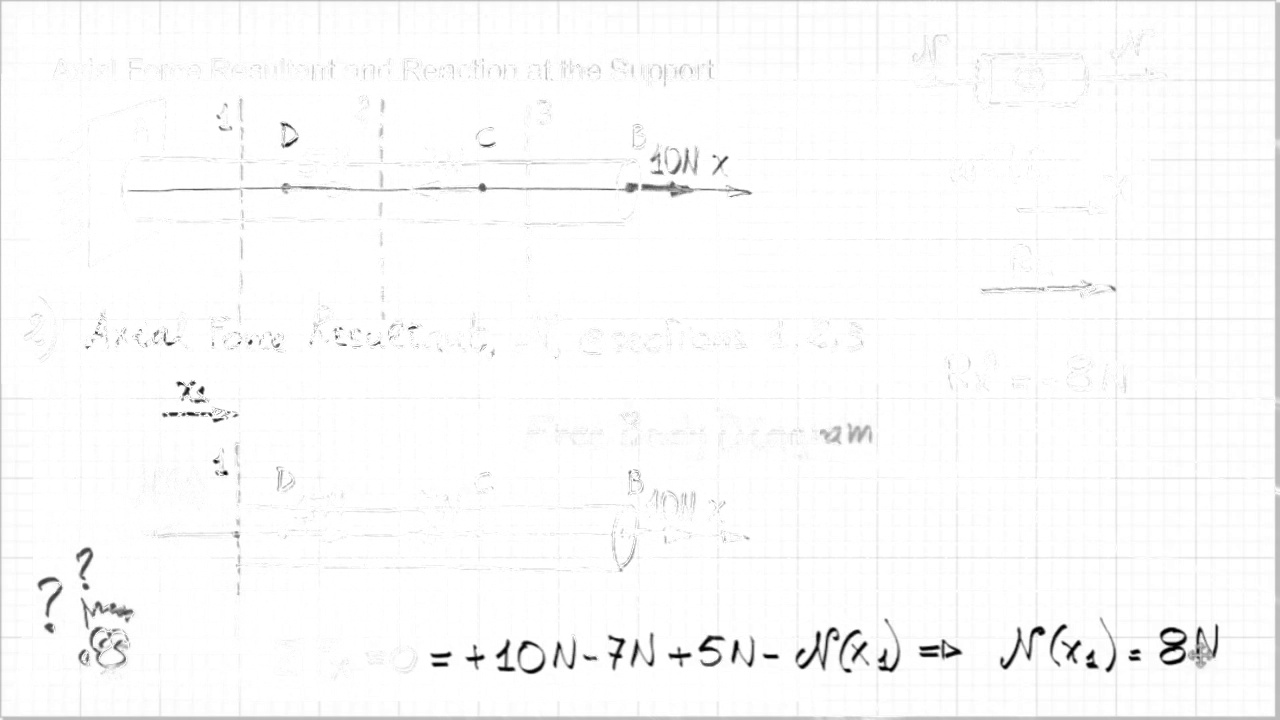 Axial Force Resultant and Reaction at the Support
N N
1 2 3
A D C B
5N 7N 10N x
x
R
2) Axial Force Resultant, N, @ sections 1, 2, 3
Rx = -8N
x1
Free Body Diagram
1 D C B
10N x
? ?
ΣFx = 0 = +10N - 7N + 5N - N(x1) => N(x1) = 8N